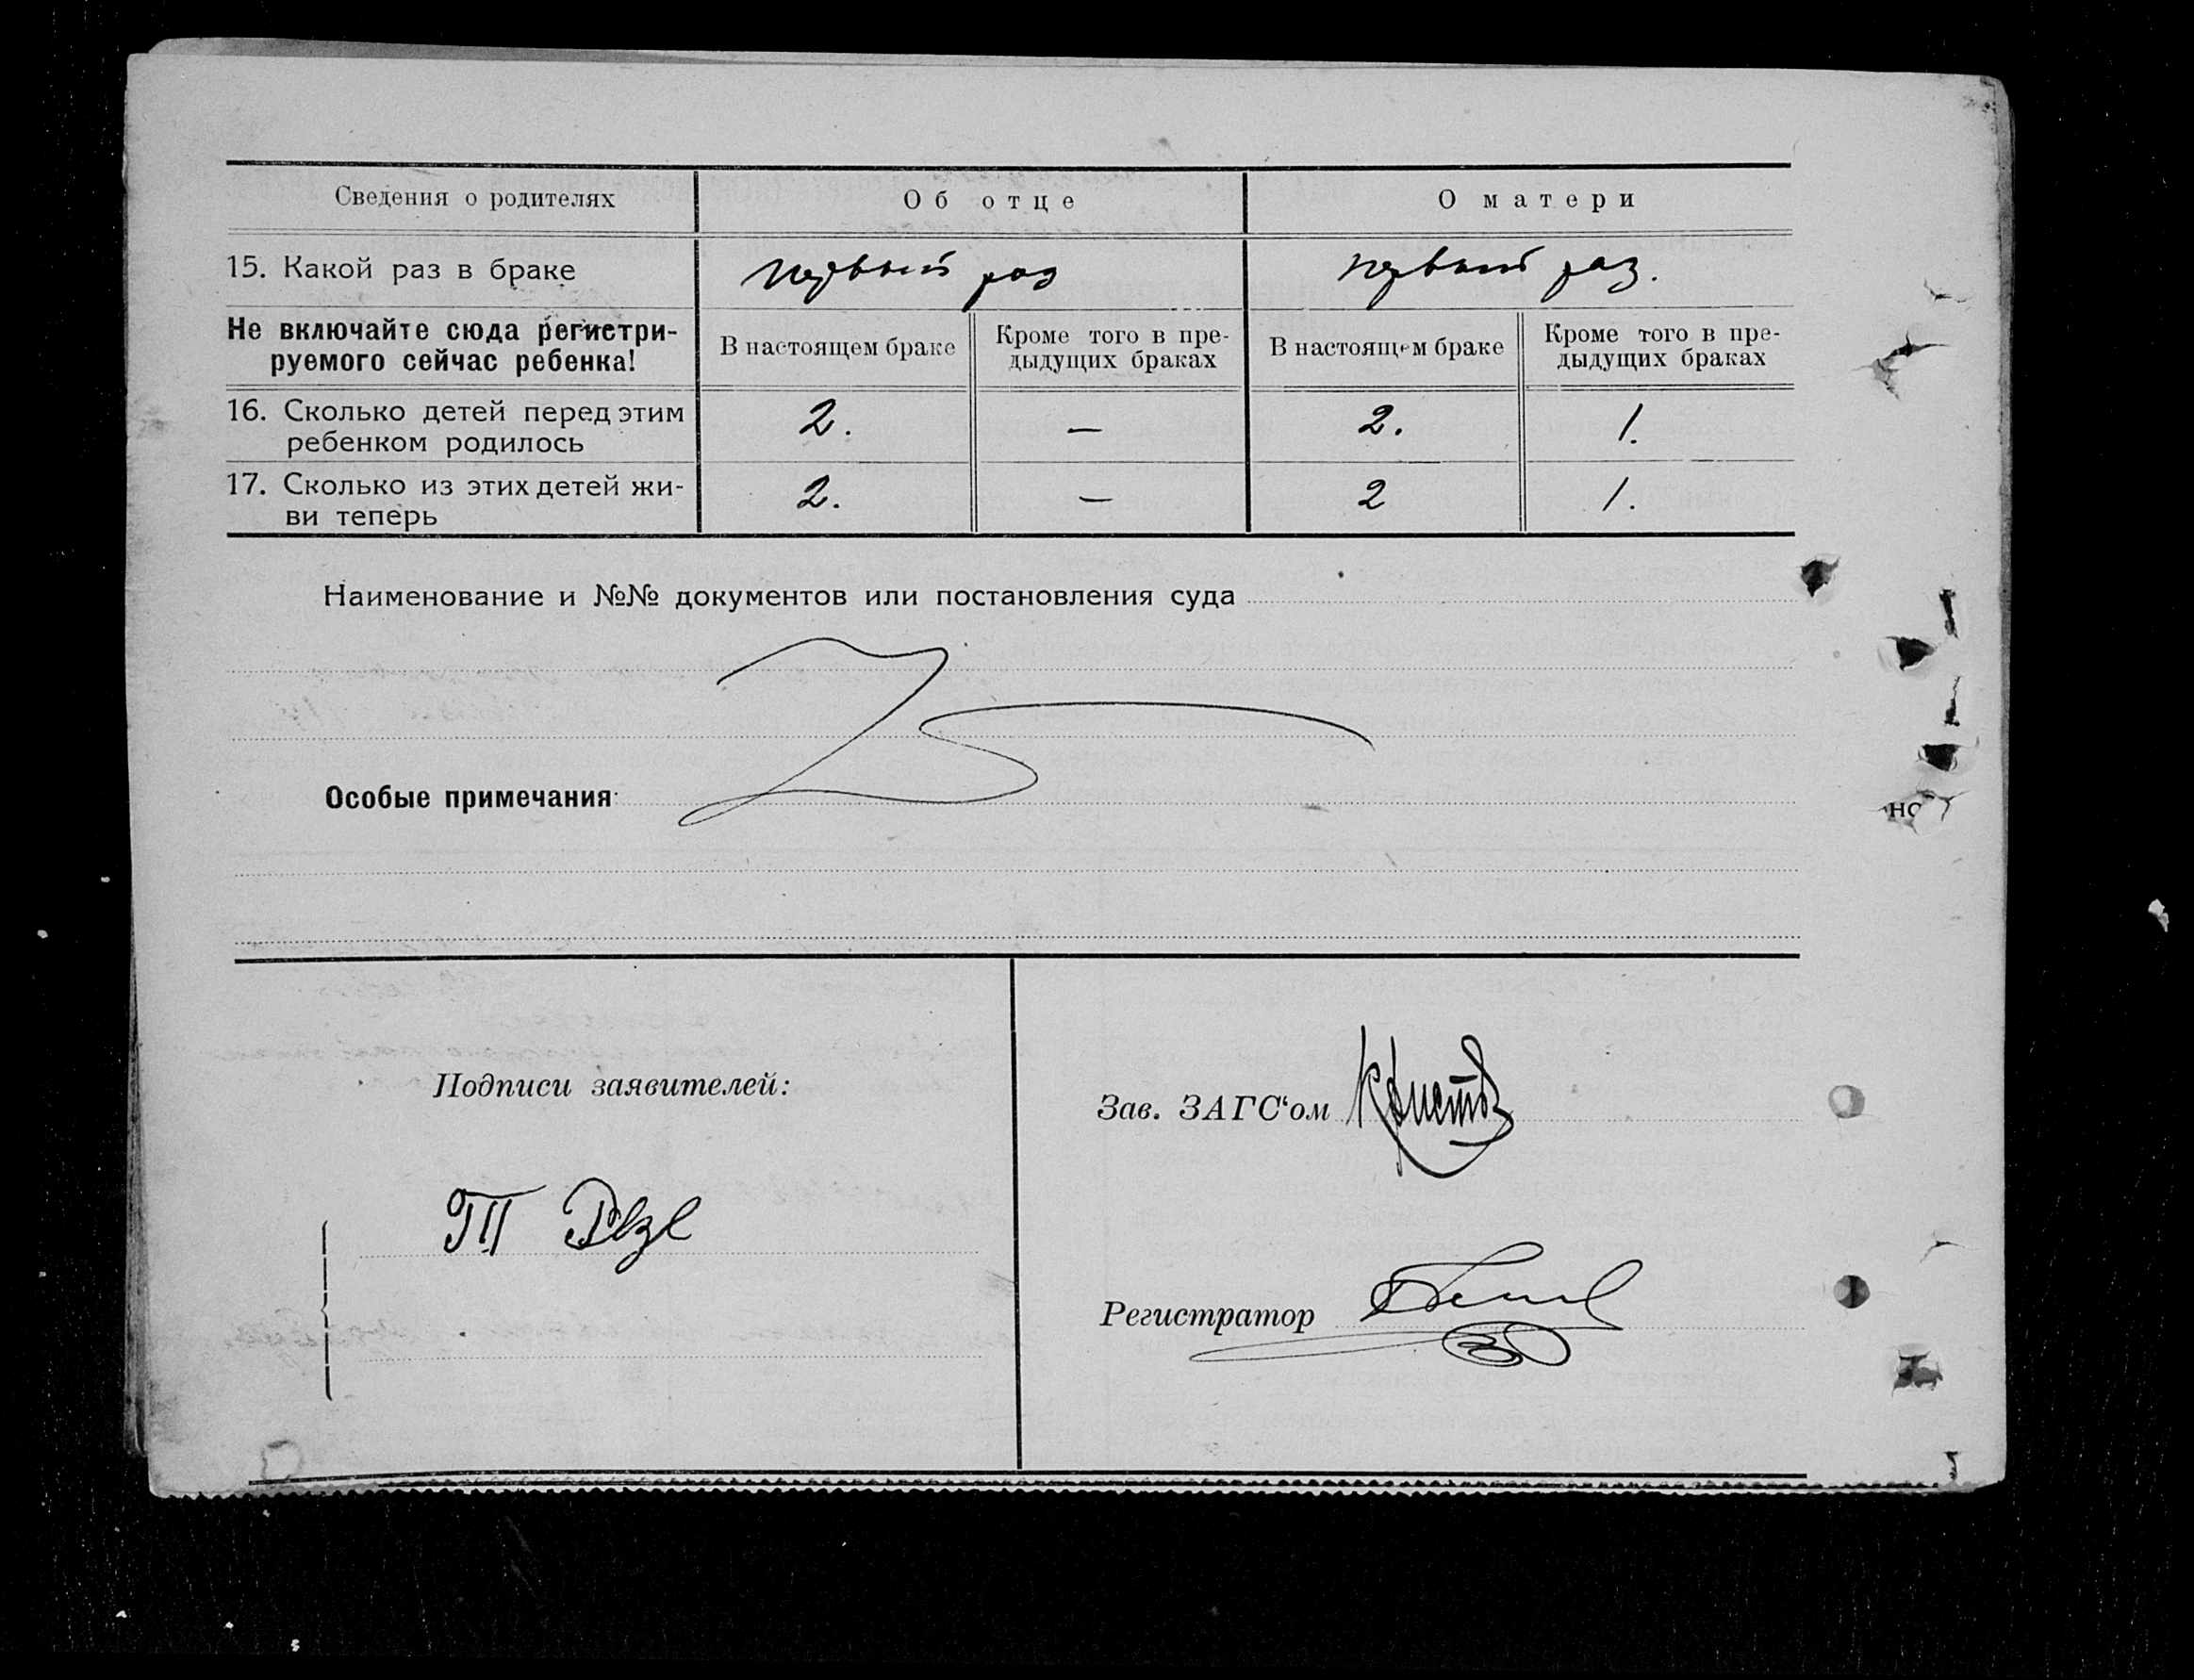 Сведения о родителях
Об отце
О матери
15. Какой раз в браке
первый раз
первый раз.
Не включайте сюда регистри-
руемого сейчас ребенка!
В настоящем браке
Кроме того в пре-
дыдущих браках
В настоящем браке
Кроме того в пре-
дыдущих браках
16. Сколько детей перед этим
ребенком родилось
2.
—
2.
1.
17. Сколько из этих детей жи-
ви теперь
2.
—
2
1.
Наименование и №№ документов или постановления суда
Особые примечания
но
Подписи заявителей:
Зав. ЗАГС‘ом
Регистратор